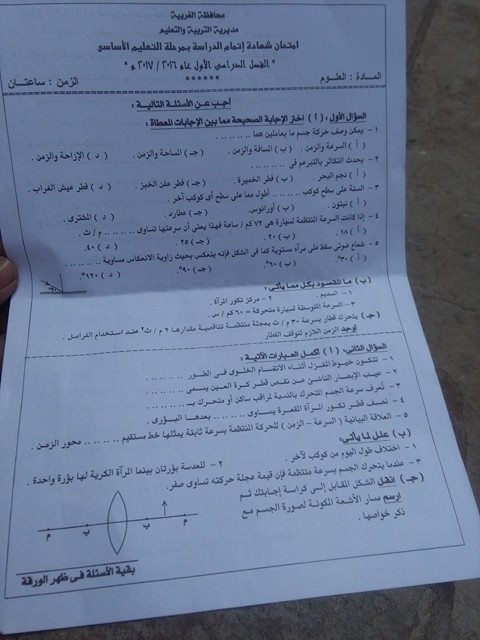 محافظة الغربية
مديرية التربية والتعليم
امتحان شهادة إتمام الدراسة بمرحلة التعليم الأساسى
" الفصل الدراسى الأول عام ٢٠١٦ / ٢٠١٧ م "
المـادة : العلــوم الزمن : ساعتــان
******
أجيب عن الأسئلة التالية :
السؤال الأول : ( أ ) اختر الإجابة الصحيحة مما بين الإجابات المعطاة :
١ - يمكن وصف حركة جسم ما بعاملين هما ........
( أ ) السرعة والزمن . ( ب ) المسافة والزمن . ( جـ ) المساحة والزمن . ( د ) الإزاحة والزمن .
٢ - يحدث التكاثر بالتبرعم فى ........
( أ ) نجم البحر . ( ب ) فطر الخميرة . ( جـ ) فطر عفن الخبز . ( د ) فطر عيش الغراب .
٣ - السنة على سطح كوكب ........ أطول مما على سطح أى كوكب آخر .
( أ ) نبتون . ( ب ) أورانوس . ( جـ ) عطارد . ( د ) المشترى .
٤ - إذا كانت السرعة المنتظمة لسيارة هى ٧٢ كم / ساعة فهذا يعنى أن سرعتها تساوى ........ م / ث .
( أ ) ١٨ . ( ب ) ٢٠ . ( جـ ) ٢٥ . ( د ) ٤٠ .
٥ - شعاع ضوئى سقط على مرآه مستوية كما فى الشكل فإنه ينعكس بحيث زاوية الانعكاس مساوية ........
( أ ) ٣٠° . ( ب ) ٦٠° . ( جـ ) ٩٠° . ( د ) ١٢٠° .
( ب ) ما المقصود بكل مما يأتى :
١ - السديم . ٢ - مركز تكور المرآة .
٣ - السرعة المتوسطة لسيارة متحركة = ٦٠ كم / س .
( جـ ) يتحرك قطار بسرعة ٣٠ م / ث بعجلة منتظمة تناقصية مقدارها ٢ م / ث٢ عند استخدام الفرامل .
أوجد الزمن اللازم لتوقف القطار
السؤال الثانى : ( أ ) أكمل العبارات الآتية :
١ - تتكون خيوط المغزل أثناء الانقسام الخلوى فى الطور ........
٢ - عيب الإبصار الناشئ عن نقص قطر كرة العين يسمى ........
٣ - تُعرف سرعة الجسم المتحرك بالنسبة لمراقب ساكن أو متحرك بـ ........
٤ - نصف قطر تكور المرآة المقعرة يساوى ........ بعدها البؤرى .
٥ - العلاقة البيانية ( السرعة - الزمن ) للحركة المنتظمة بسرعة ثابتة يمثلها خط مستقيم ........ محور الزمن .
( ب ) علل لما يأتى :
١ - اختلاف طول اليوم من كوكب لآخر . ٢ - للعدسة بؤرتان بينما المرآة الكرية لها بؤرة واحدة .
٣ - عندما يتحرك الجسم بسرعة منتظمة فإن قيمة عجلة حركته تساوى صفر .
( جـ ) انقل الشكل المقابل إلى كراسة إجابتك ثم
ارسم مسار الأشعة المكونة لصورة الجسم مع
ذكر خواصها .
م ب ب م
بقية الأسئلة فى ظهر الورقة